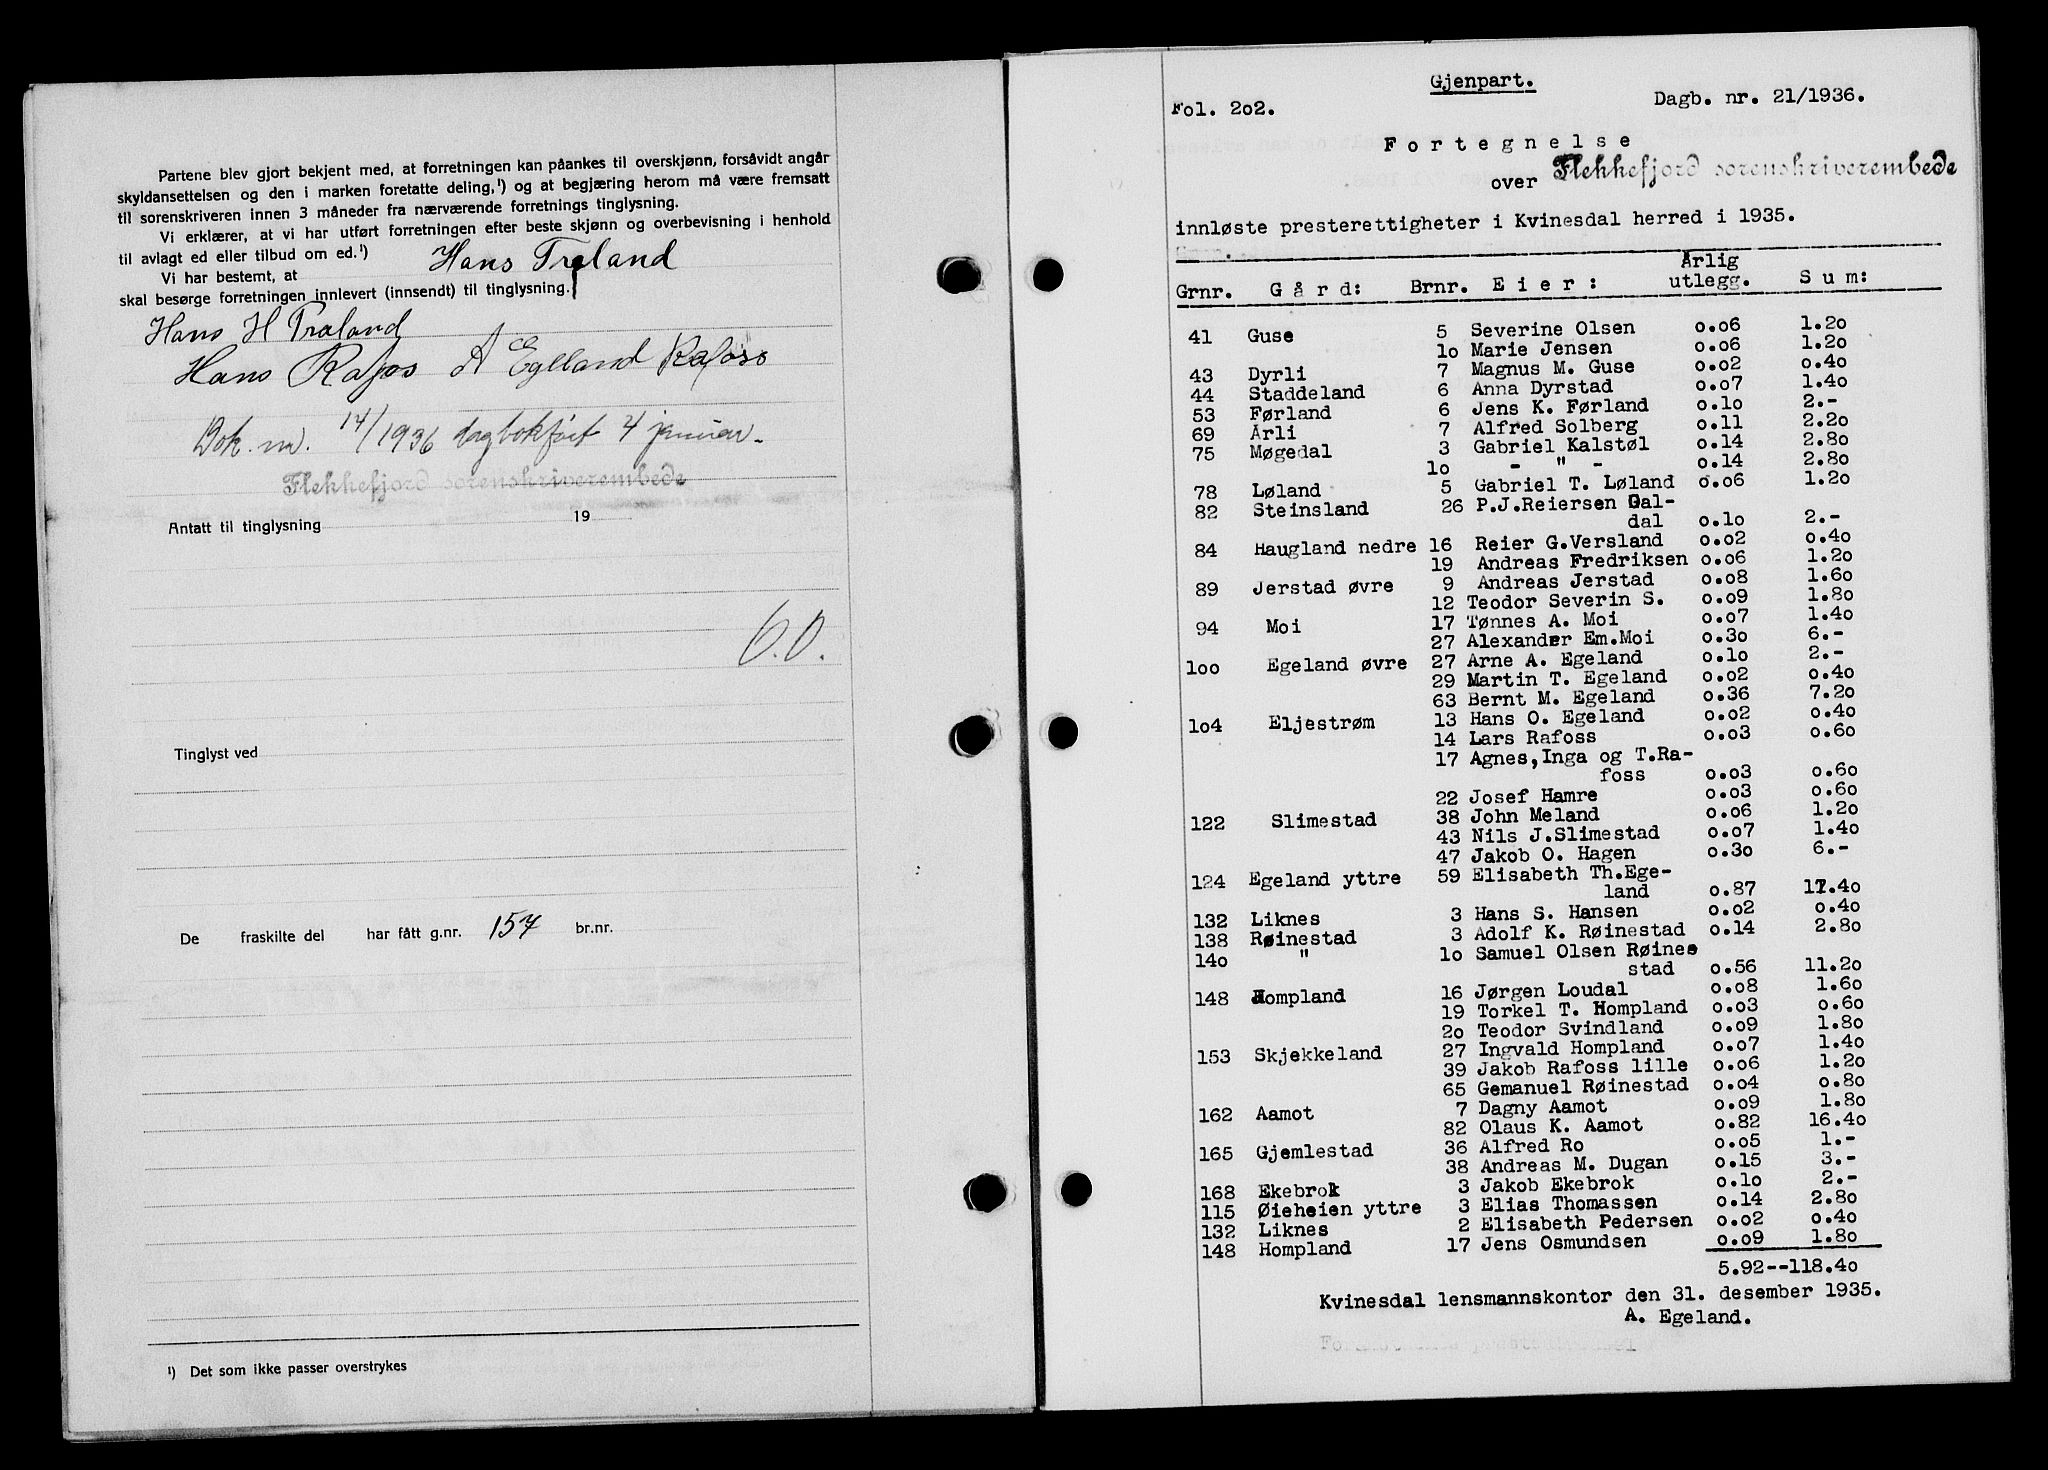 Partene blev gjort bekjent med, at forretningen kan påankes til overskjønn, forsåvidt angår
skyldansettelsen og den i marken foretatte deling,¹) og at begjæring herom må være fremsatt
til sorenskriveren innen 3 måneder fra nærværende forretnings tinglysning.
Vi erklærer, at vi har utført forretningen efter beste skjønn og overbevisning i henhold
til avlagt ed eller tilbud om ed.¹)
Vi har bestemt, at Hans Træland
skal besørge forretningen innlevert (innsendt) til tinglysning.
Hans H Træland
Hans Rafos A Egeland Rafoss
Dok. nr. 14/1936 dagbokført 4 januar.
Flekkefjord sorenskriverembede
Antatt til tinglysning 19
6.0.
Tinglyst ved
De fraskilte del har fått g.nr. 157 br.nr.
¹) Det som ikke passer overstrykes
Gjenpart.
Fol. 2o2. Dagb. nr. 21/1936.
Fortegnelse
over Flekkefjord sorenskriverembede
innløste presterettigheter i Kvinesdal herred i 1935.
Grnr. Gård: Brnr. Eier: Årlig utlegg. Sum:
41 Guse 5 Severine Olsen o.o6 1.2o
1o Marie Jensen o.o6 1.2o
43 Dyrli 7 Magnus M. Guse o.o2 o.4o
44 Staddeland 6 Anna Dyrstad o.o7 1.4o
53 Førland 6 Jens K. Førland o.1o 2.-
69 Årli 7 Alfred Solberg o.11 2.2o
75 Møgedal 3 Gabriel Kalstøl o.14 2.8o
1o - " - o.14 2.8o
78 Løland 5 Gabriel T. Løland o.o6 1.2o
82 Steinsland 26 P.J.Reiersen Gal-
dal o.1o 2.-
84 Haugland nedre 16 Reier G.Versland o.o2 o.4o
19 Andreas Fredriksen o.o6 1.2o
89 Jerstad øvre 9 Andreas Jerstad o.o8 1.6o
12 Teodor Severin S. o.o9 1.8o
94 Moi 17 Tønnes A. Moi o.o7 1.4o
27 Alexander Em.Moi o.3o 6.-
1oo Egeland øvre 27 Arne A. Egeland o.1o 2.-
29 Martin T. Egeland o.o2 o.4o
63 Bernt M. Egeland o.36 7.2o
1o4 Eljestrøm 13 Hans O. Egeland o.o2 o.4o
14 Lars Rafoss o.o3 o.6o
17 Agnes,Inga og T.Ra-
foss o.o3 o.6o
22 Josef Hamre o.o3 o.6o
122 Slimestad 38 John Meland o.o6 1.2o
43 Nils J.Slimestad o.o7 1.4o
47 Jakob O. Hagen o.3o 6.-
124 Egeland yttre 59 Elisabeth Th.Ege-
land o.87 17.4o
132 Liknes 3 Hans S. Hansen o.o2 o.4o
138 Røinestad 3 Adolf K. Røinestad o.14 2.8o
14o " 1o Samuel Olsen Røines
stad o.56 11.2o
148 Hompland 16 Jørgen Loudal o.o8 1.6o
19 Torkel T. Hompland o.o3 o.6o
2o Teodor Svindland o.o9 1.8o
153 Skjekkeland 27 Ingvald Hompland o.o7 1.4o
39 Jakob Rafoss lille o.o6 1.2o
65 Gemanuel Røinestad o.o4 o.8o
162 Aamot 7 Dagny Aamot o.o9 1.8o
82 Olaus K. Aamot o.82 16.4o
165 Gjemlestad 36 Alfred Ro o.o5 1.-
38 Andreas M. Dugan o.15 3.-
168 Ekebrok 3 Jakob Ekebrok o.1o 2.-
115 Øieheien yttre 3 Elias Thomassen o.14 2.8o
132 Liknes 2 Elisabeth Pedersen o.o2 o.4o
148 Hompland 17 Jens Osmundsen o.o9 1.8o
5.92--118.4o
Kvinesdal lensmannskontor den 31. desember 1935.
A. Egeland.